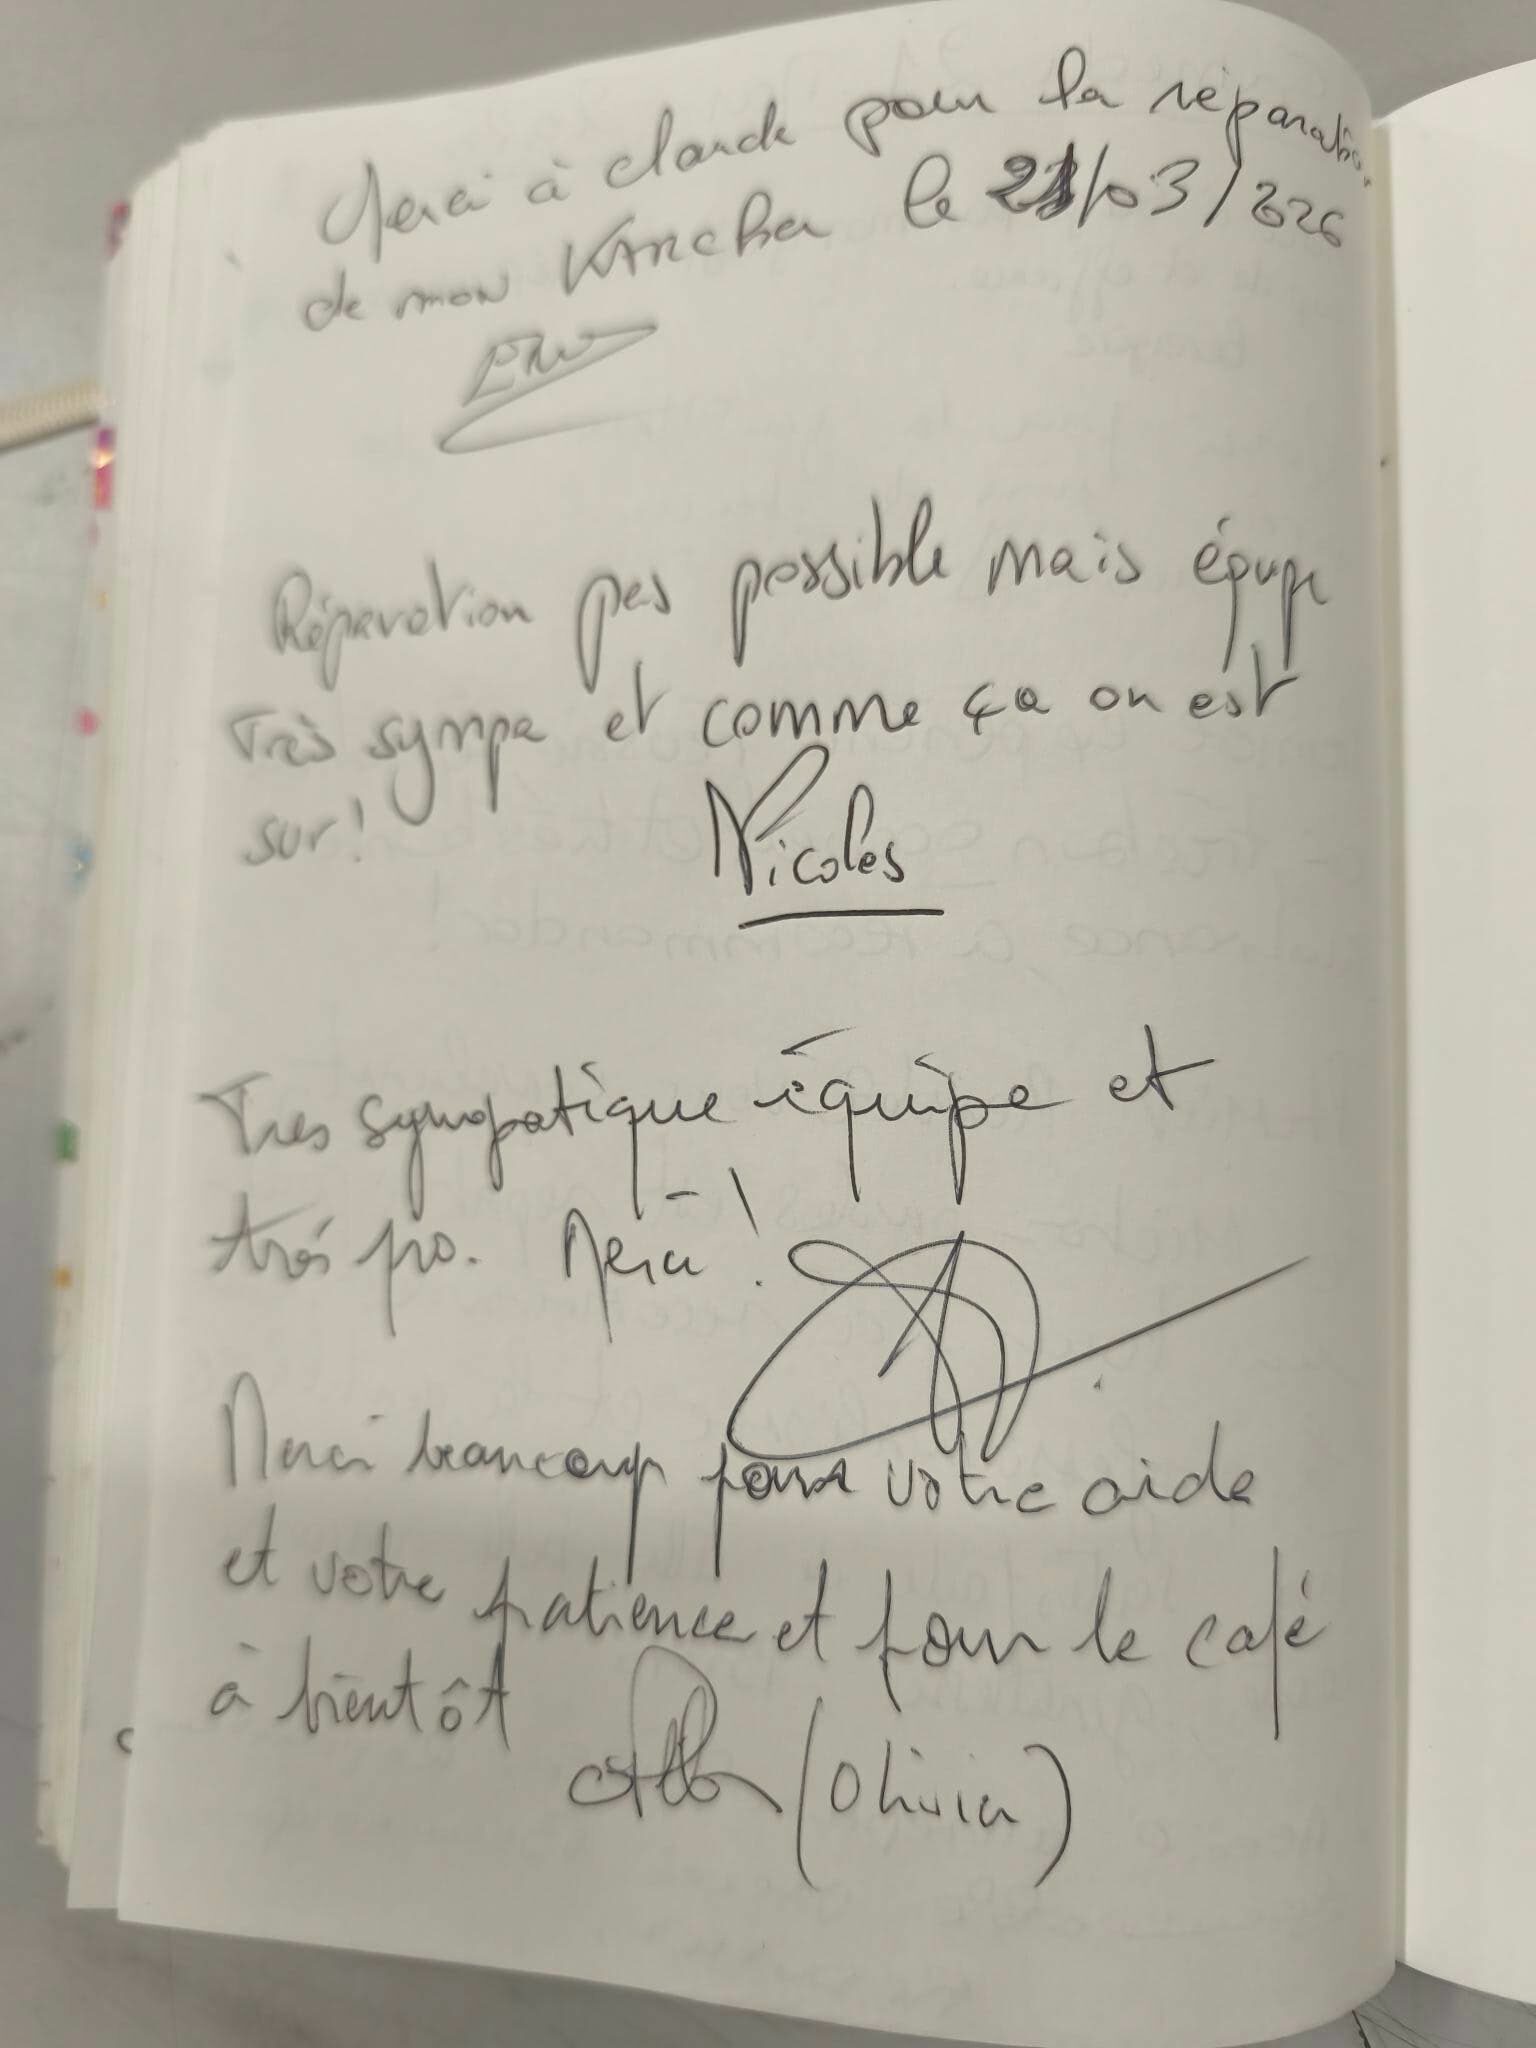 Merci à claude pour la réparation
de mon KARcher le 21/03/2026
Réparation pas possible mais équipe
très sympa et comme ça on est
sur!
Nicolas
Tres sympatique équipe et
très pro. Merci!
Merci beaucoup pour votre aide
et votre patience et pour le café
à bientôt
(Olivia)